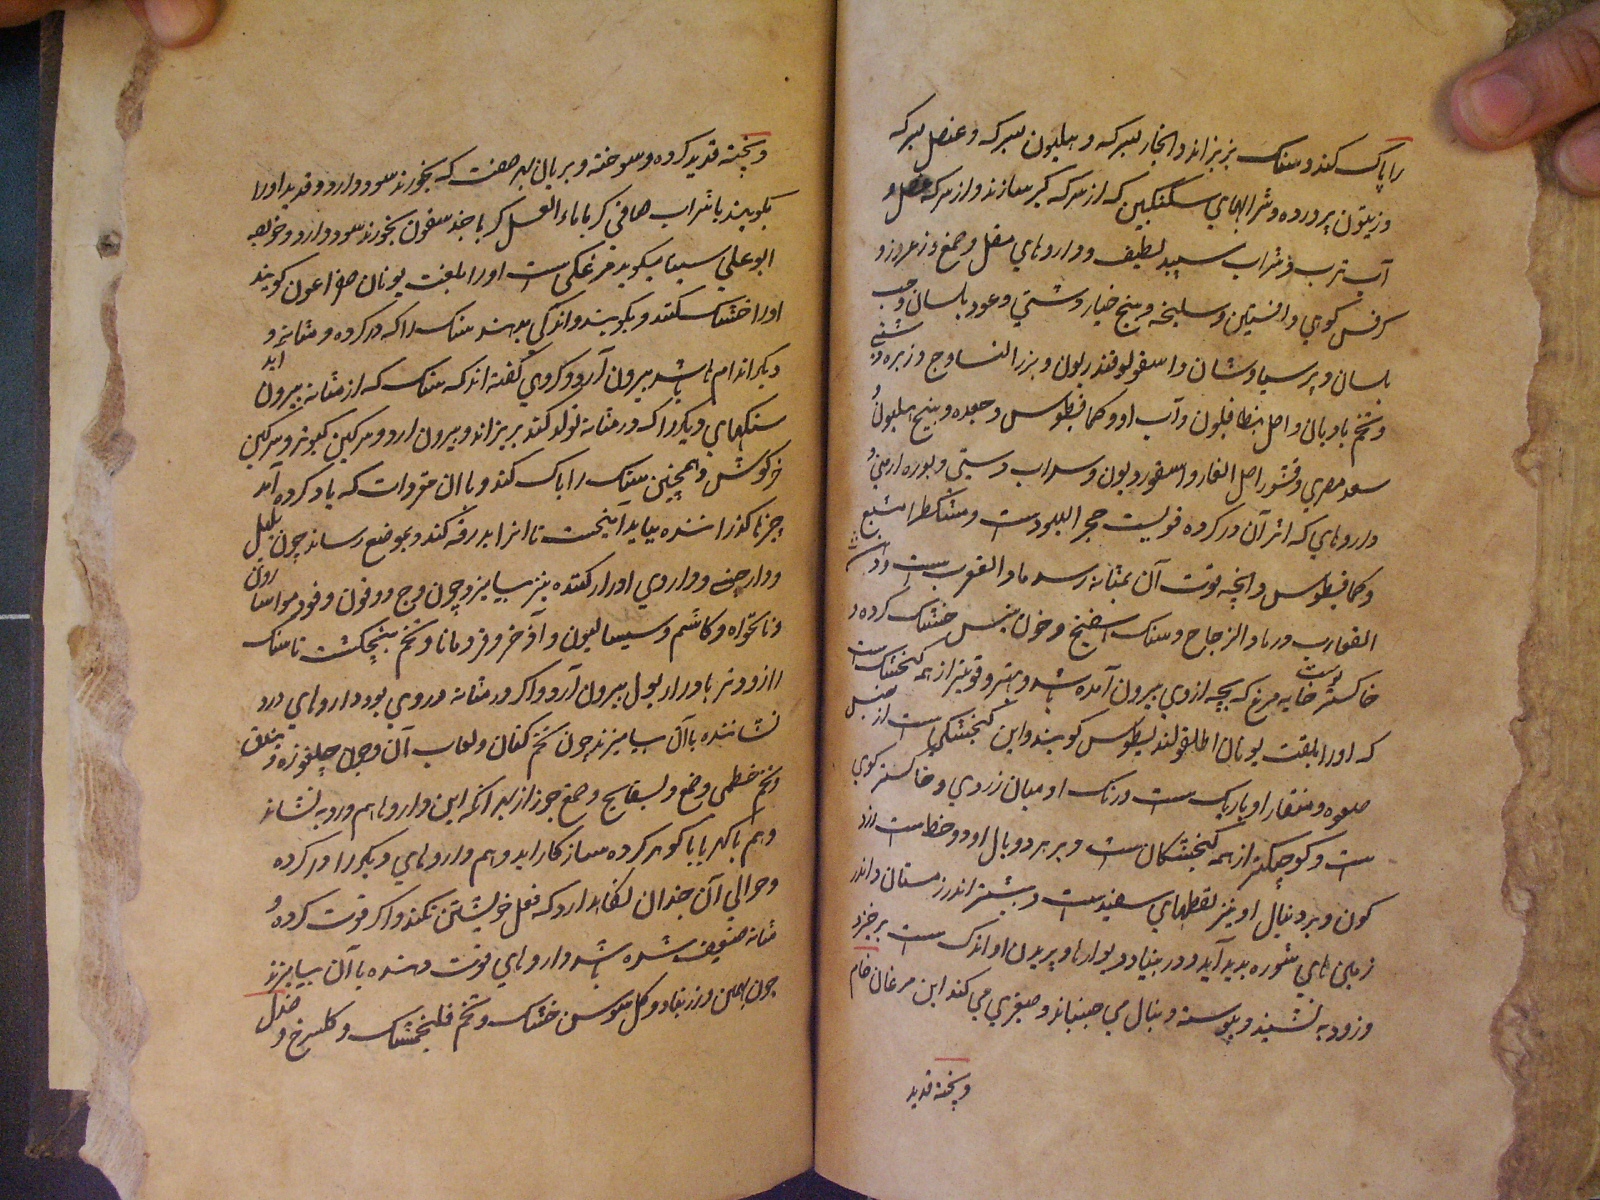 را پاک کند و سنک بریزاند و انجار بسرکه و هلیون بسرکه و عنصل بسرکه
و زیتون پرورده و شرابهای سکنکبین که از سرکه کبر سازند و از سرکه عنصل و
آب ترب و شراب سپید لطیف و داروهای مقل و صمغ و زعرور و
کرفس کوهی و افسنتین و سلیخه و بیخ خیار دشتی و عود بلسان و حب
بلسان و پرسیاوشان و اسقولوقندریون و بزر النساوج و زیره دشتی
و تخم بادیان و اصل بنطافیلون و آب او و کمافیطوس و جعده و بیخ هلیون و
سعد مصری و قشور اصل الغار و اسقوردیون و سداب دشتی و بوره ارمنی و
داروهای که اثر آن در کرده قویست حجر الیهودست و مشکطرامشیع
و کمافیطوس و انچه قوت آن بمثانه رسد رماد العقرب ست و دهن
العقارب و رماد الزجاج و سنک اسفنج و خون تیس خشک کرده و
خاکستر پوست خایه مرغ که بچه ازوی بیرون آمده باشد و بهتر و قویتر از همه کنجشک ست
که اورا بلغت یونان اطراغولیدیطوس کویند و این کنجشکی ست از جنس
صعوه و منقار او باریک ست و رنک او میان زردی و خاکستر کونی
ست و کوچکتر از همه کنجشکان ست و بر هر دو بال او دو خط است زرد
کون و بر دنبال او نیز نقطهای سفیدست و بیشتر اندر زمستان و اندر
زمین های شوره پدید آید و در بنیاد دیوارها و پریدن او اندک ست برخیزد
و زود بنشیند و پیوسته دنبال می جنباند و صفیری می کند این مرغان خام
و پخته قدید
و پخته قدید کرده و سوخته و بریان بهر صفت که بخورند سود دارد و قدید اورا
بکوبند با شراب صافی کر با ماء العسل کر با خندیقون بخورند سود دارد و خواجه
ابو علی سینا میکوید مرغکی ست اورا بلغت یونان صفراغون کویند
اورا خشک کنند و بکوبند و اندکی بدهند سنک را که در کرده و مثانه و
دیکر اندام باشد بیرون آرد و کروهی کفته اند که سنک که از مثانه بیرون آید
سنکهای دیکر را که در مثانه تولد کند بریزاند و بیرون ارد و سرکین کبوتر و سرکین
خرکوش و همچنین سنک را پاک کند و با ان مفردات که یاد کرده آمد
چیزها کذراننده بباید آمیخت تا انرا بدرقه کند و بموضع رساند چون پلپل
و دارچینی و داروی ادرار کننده نیز بیامیزد چون وج و دوقون و فو و مو و اسارون
و نانخواه و کاشم و سیسالیون و اذخر و قردمانا و تخم پنجنکشت تا سنک
را زودتر با ادرار بول بیرون آرد و اکر در مثانه دردی بود داروهای درد
نشاننده با آن بیامیزند چون تخم کتان و لعاب آن و چون چلغوزه و بندق
و تخم خطمی و صمغ و بسفایج و صمغ جوز از بهر آنکه این داروها هم درد بنشاند
و هم با کهربا با کوهر کرده سازکار اید و هم داروهای دیکر را در کرده
و حوالی آن چندان نکاهدارد که فعل خویشتن بکند و اکر قوت کرده و
مثانه ضعیف شده باشد داروهای قوت دهنده با آن بیامیزند
چون بهمن و زرنباد و کل سوسن خشک و تخم فلنجمشک و کلسرخ و صندل